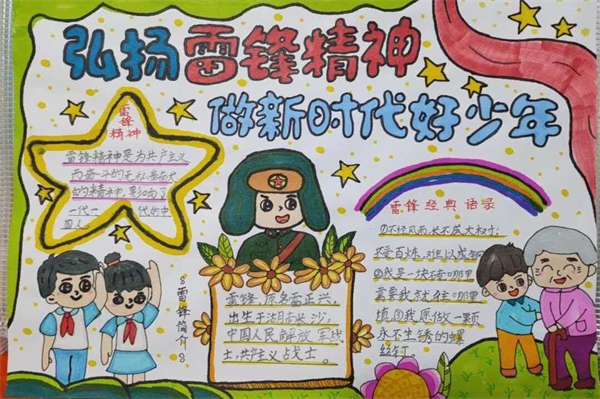 弘扬雷锋精神
做新时代好少年
雷锋
精神
雷锋精神是为共产主义
而奋斗的无私奉献
的精神,影响了
一代一 代的中
国人
雷锋简介
雷锋,原名雷正兴,
出生于湖南长沙,
中国人民解放军战
士,共产主义战士。
雷锋经典语录
①不经风雨,长不成大树;
不受百炼,难以成钢
②我是一块砖哪里
需要我就往哪里
③我愿做一颗
永不生锈的螺
丝钉。